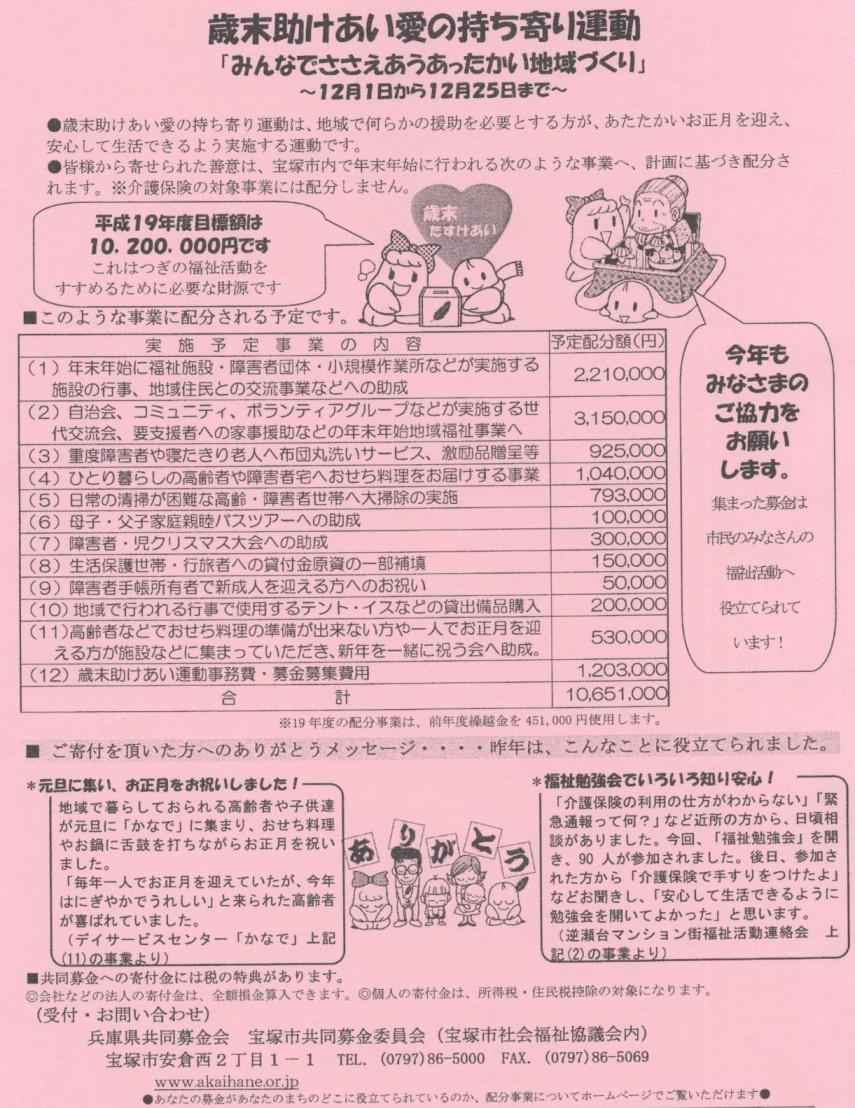 歳末助けあい愛の持ち寄り運動
「みんなでささえあうあったかい地域づくり」
～12月1日から12月25日まで～
●歳末助けあい愛の持ち寄り運動は、地域で何らかの援助を必要とする方が、あたたかいお正月を迎え、
安心して生活できるよう実施する運動です。
●皆様から寄せられた善意は、宝塚市内で年末年始に行われる次のような事業へ、計画に基づき配分さ
れます。※介護保険の対象事業には配分しません。
平成19年度目標額は
10,200,000円です
これはつぎの福祉活動を
すすめるために必要な財源です
歳末
たすけあい
■このような事業に配分される予定です。
実施予定事業の内容 予定配分額(円)
(1) 年末年始に福祉施設・障害者団体・小規模作業所などが実施する
施設の行事、地域住民との交流事業などへの助成 2,210,000
(2) 自治会、コミュニティ、ボランティアグループなどが実施する世
代交流会、要支援者への家事援助などの年末年始地域福祉事業へ 3,150,000
(3) 重度障害者や寝たきり老人へ布団丸洗いサービス、激励品贈呈等 925,000
(4) ひとり暮らしの高齢者や障害者宅へおせち料理をお届けする事業 1,040,000
(5) 日常の清掃が困難な高齢・障害者世帯へ大掃除の実施 793,000
(6) 母子・父子家庭親睦バスツアーへの助成 100,000
(7) 障害者・児クリスマス大会への助成 300,000
(8) 生活保護世帯・行旅者への貸付金原資の一部補填 150,000
(9) 障害者手帳所有者で新成人を迎える方へのお祝い 50,000
(10) 地域で行われる行事で使用するテント・イスなどの貸出備品購入 200,000
(11) 高齢者などでおせち料理の準備が出来ない方や一人でお正月を迎
える方が施設などに集まっていただき、新年を一緒に祝う会へ助成。 530,000
(12) 歳末助けあい運動事務費・募金募集費用 1,203,000
合計 10,651,000
※19年度の配分事業は、前年度繰越金を451,000円使用します。
今年も
みなさまの
ご協力を
お願い
します。
集まった募金は
市民のみなさんの
福祉活動へ
役立てられて
います！
■ ご寄付を頂いた方へのありがとうメッセージ・・・・昨年は、こんなことに役立てられました。
*元旦に集い、お正月をお祝いしました！
地域で暮らしておられる高齢者や子供達
が元旦に「かなで」に集まり、おせち料理
やお鍋に舌鼓を打ちながらお正月を祝い
ました。
「毎年一人でお正月を迎えていたが、今年
はにぎやかでうれしい」と来られた高齢者
が喜ばれていました。
（デイサービスセンター「かなで」上記
(11)の事業より）
ありがとう
*福祉勉強会でいろいろ知り安心！
「介護保険の利用の仕方がわからない」「緊
急通報って何？」など近所の方から、日頃相
談がありました。今回、「福祉勉強会」を開
き、90人が参加されました。後日、参加さ
れた方から「介護保険で手すりをつけたよ」
などお聞きし、「安心して生活できるように
勉強会を開いてよかった」と思います。
（逆瀬台マンション街福祉活動連絡会　上
記(2)の事業より）
■共同募金への寄付金には税の特典があります。
◎会社などの法人の寄付金は、全額損金算入できます。◎個人の寄付金は、所得税・住民税控除の対象になります。
（受付・お問い合わせ）
兵庫県共同募金会　宝塚市共同募金委員会（宝塚市社会福祉協議会内）
宝塚市安倉西２丁目１－１　TEL. (0797)86-5000　FAX. (0797)86-5069
www.akaihane.or.jp
●あなたの募金があなたのまちのどこに役立てられているのか、配分事業についてホームページでご覧いただけます●